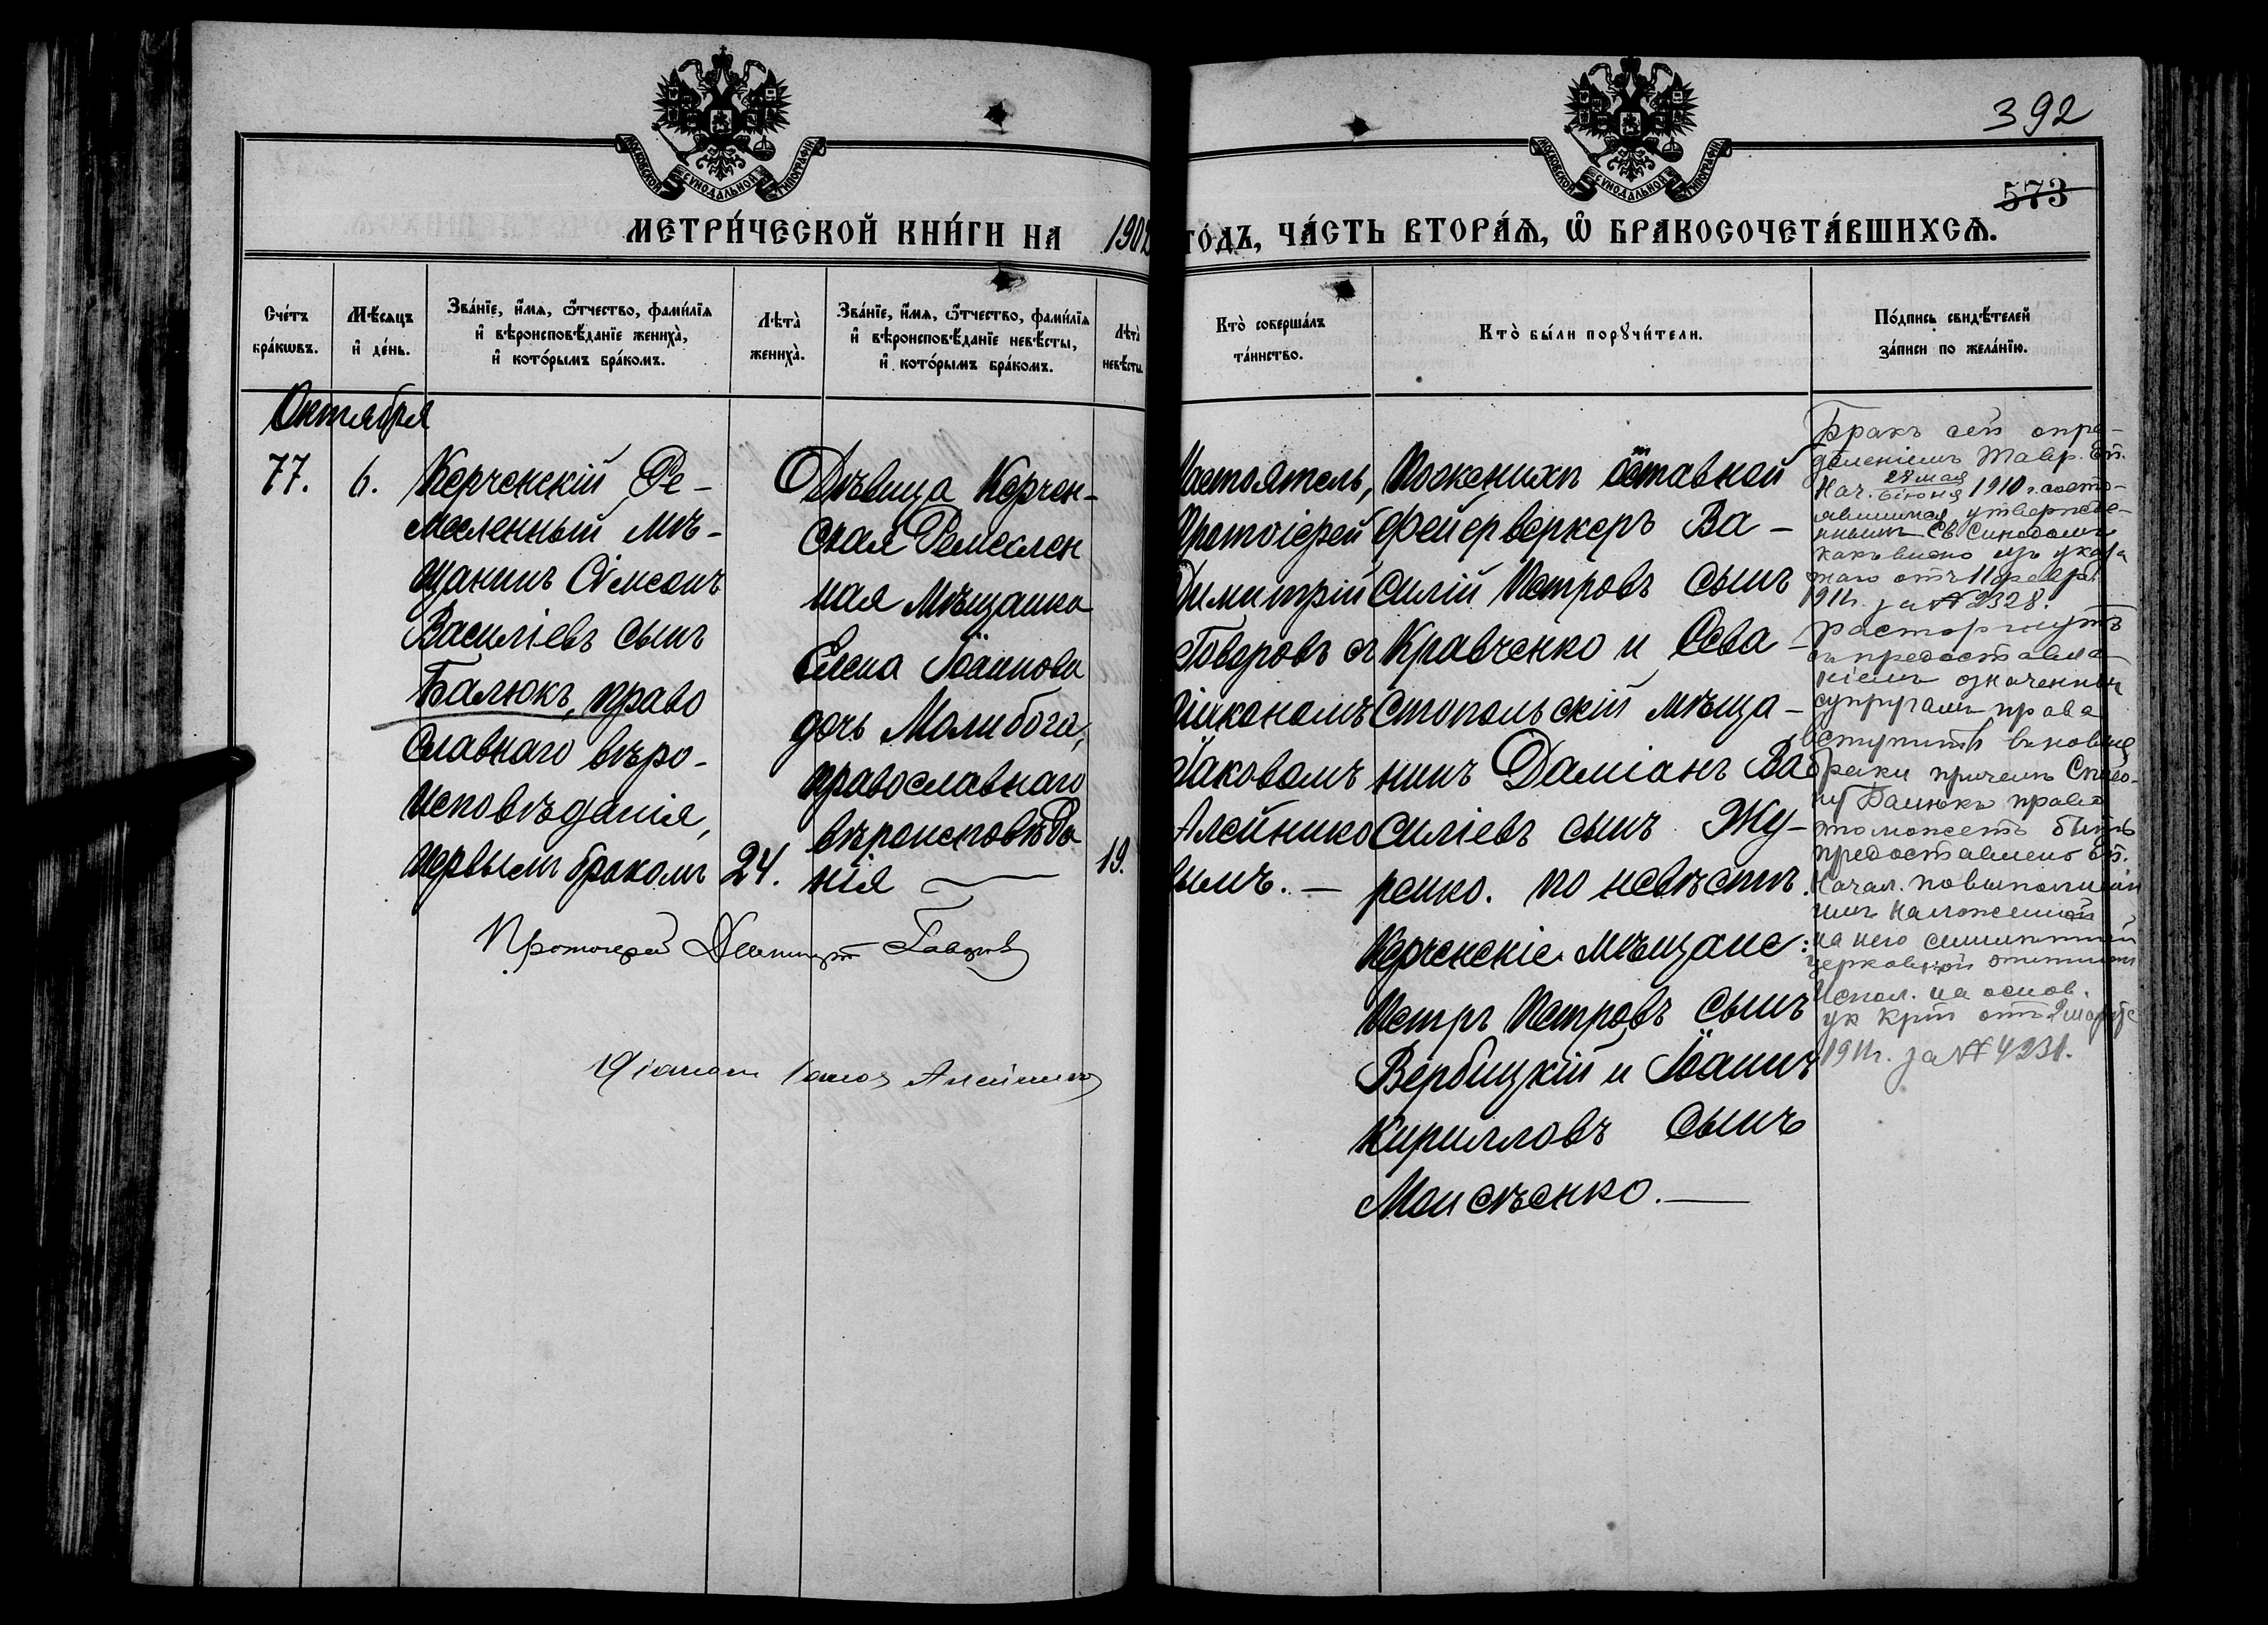 392
573
МОСКОВСКОЙ СѴНОДАЛЬНОЙ ТИПОГРАФІИ
МОСКОВСКОЙ СѴНОДАЛЬНОЙ ТИПОГРАФІИ
МЕТРИ́ЧЕСКОЙ КНИ́ГИ НА 1902
ГО́ДЪ, ЧА́СТЬ ВТОРА́Ѧ, Ѽ БРАКОСОЧЕТА́ВШИХСѦ.
Сче́тъ
бра́кѡвъ.
Мѣ́сѧцъ
и҆ де́нь.
Зва́нїе, и҆́мѧ, ѻ҆́тчество, фами́лїѧ
и҆ вѣроисповѣ́данїе жениха̀,
и҆ кото́рымъ бра́комъ.
Лѣта̀
жениха̀.
Зва́нїе, и҆́мѧ, ѻ҆́тчество, фами́лїѧ
и҆ вѣроисповѣ́данїе невѣ́сты,
и҆ кото́рымъ бра́комъ.
Лѣта̀
невѣ́сты.
Кто̀ соверша́лъ
та́инство.
Кто̀ бы́ли порꙋчи́тели.
По́дпись свидѣ́телей
за́писи по жела́нїю.
Октября
77.
6.
Керченскій Ре-
месленный мѣ-
щанинъ Сімеонъ
Василіевъ сынъ
Балюкъ, право
славнаго вѣро-
исповѣданія,
первымъ бракомъ
24.
Дѣвица Керчен-
ская Ремеслен
ная мѣщанка
Елена Іоаннова
дочь Молибога,
православнаго
вѣроисповѣда
нія
19.
Протоіерей Димитрій Говоровъ
Діаконъ Іаковъ Алейниковъ
Настоятель,
Протоіерей
Димитрій
Говоровъ съ
діакономъ
Іаковомъ
Алейнико
вымъ. —
По женихѣ отставной
фейерверкеръ Ва-
силій Петровъ сынъ
Кравченко и Сева-
стопольскій мѣща-
нинъ Даміанъ Ва
силіевъ сынъ Жу-
ренко. по невѣстѣ.
Керченскіе мѣщане:
Петръ Петровъ сынъ
Вербицкій и Іоаннъ
Кирилловъ сынъ
Моисѣенко. —
Бракъ сей опре-
дѣленіемъ Тавр. Еп.
Нач. 28 мая / 6 іюня 1910 г. состо-
явшимся утвержде-
ннымъ Св. Синодомъ
какъ видно изъ указа
отъ 11 февр.
1911г. за № 2328.
расторгнутъ
съ предоставле-
ніемъ означеннымъ
супругамъ права
вступить въ новые
браки причемъ
Балюкъ право
это можетъ быть
предоставлено Еп.
Начал. по выполненіи
имъ наложенной
на него
церковной эпитиміи
Испол. на основ.
ук отъ 2 марта
1911г. за № 4231.